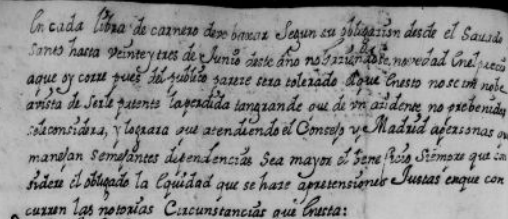 en cada libra de carnero deve baxar Segun su obligazion desde el Savado
Santo hasta veinte y tres de Junio deste año no haziendose novedad enel precio
aque oy corre pues del publico parece sera tolerado
de serle patente la perdida tangrande que de vn açidente no prebenido
se le considera, y lograra que atendiendo el Consejo y Madrid apersonas que
manejan Semejantes dependencias Sea mayor el benefiçio Siempre que con
sidere el obligado la Equidad que se haze apretensiones Justas enque con
curren las notorias Circunstancias que Enesta: